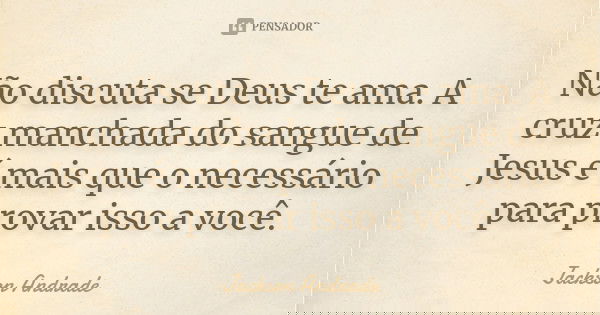 PENSADOR
Não discuta se Deus te ama. A
cruz manchada do sangue de
Jesus é mais que o necessário
para provar isso a você.
Jackson Andrade